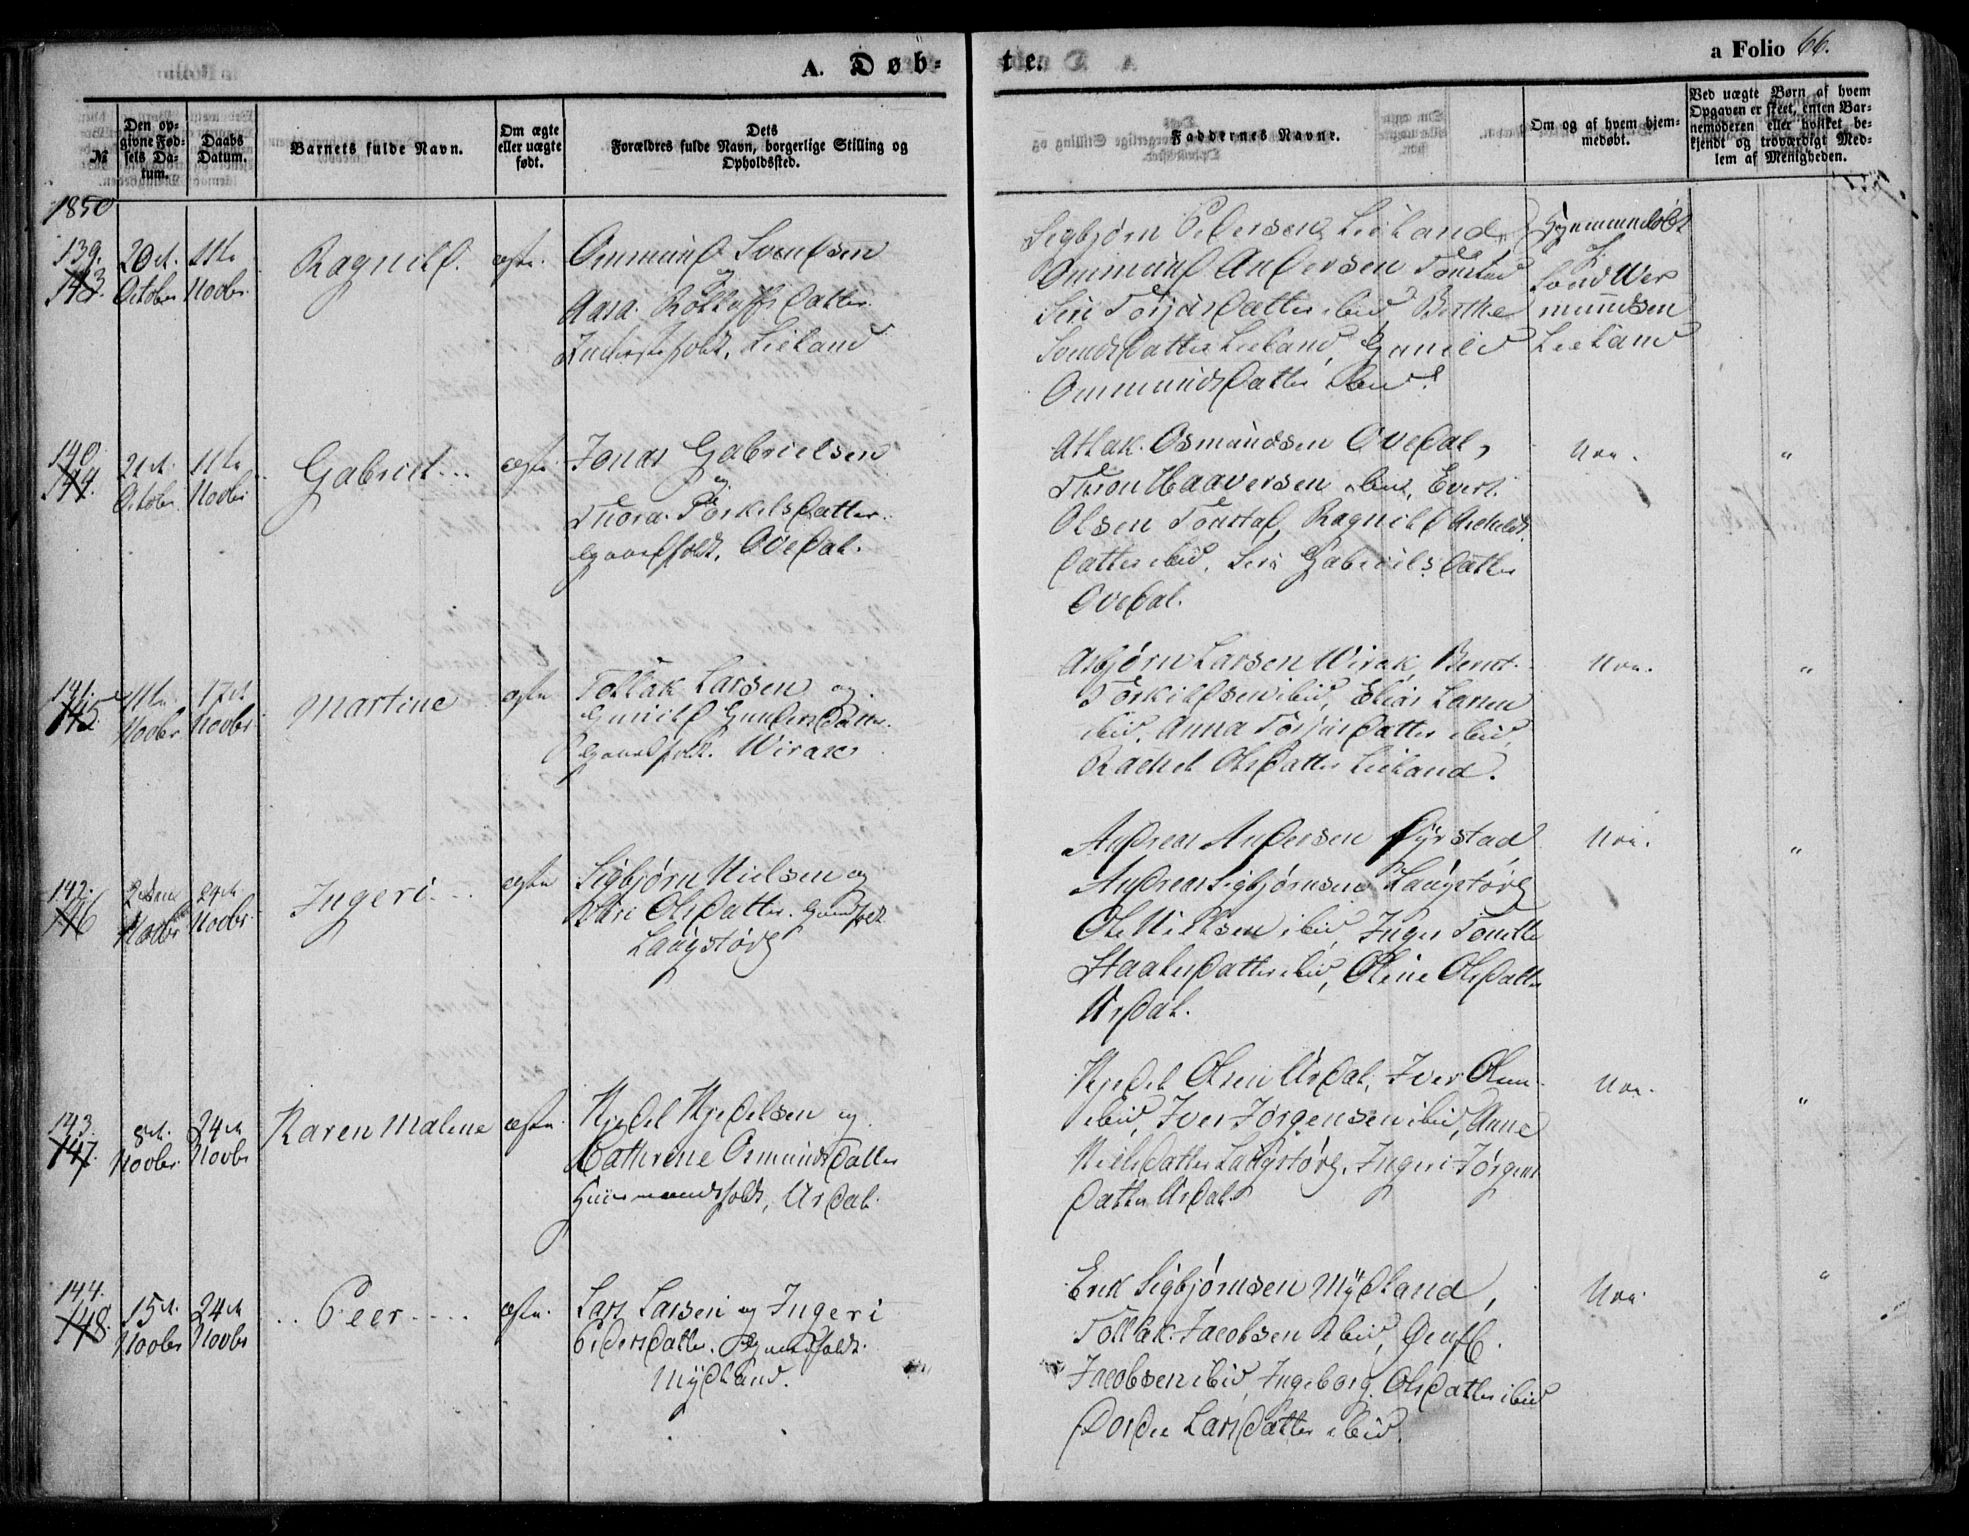 A. Døb-
te.
a Folio 66.
№
Den op-
givne Fød-
sels Da-
tum.
Daabs
Datum.
Barnets fulde Navn.
Om ægte
eller uægte
født.
Dets
Forældres fulde Navn, borgerlige Stilling og
Opholdssted.
Faddernes Navne.
Om og af hvem hjem-
medøbt.
Ved uægte Børn af hvem
Opgaven er skeet, enten Bar-
nemoderen eller hvilket be-
kjendt og troværdigt Med-
lem af Menigheden.
1850
139.
143.
20de
October
11te
Novbr
Ragnild.
ægte.
Ommund Svendsen
og
Aasa Rolleffsdatter
Lieland
Sigbjørn Pedersen Lieland,
Ommund Andersen Tonstad
Siri Torjusdatter ibid, Berthe
Svendsdatter Lieland, Gunild
Ommundsdatter ibid.
Hjemmedøbt
mundsen
Lieland
140.
144.
21de
October
11te
Novbr
Gabriel
ægte.
Jonas Gabrielsen
og
Thora Torkelsdatter.
Gaardfolk. Ovedal.
Atlak Osmundsen Ovedal,
Thron Haaversen ibid, Evert
Olsen Tonstad, Ragnild
datter ibid. Siri Gabrielsdatter
Ovedal.
Nei.
"
141.
145.
11te
Novbr
17de
Novbr
Martine
ægte
Tollak Larsen og
Gunild Gundersdatter
Gaardfolk. Wirak
Asbjørn Larsen Wirak, Bernt
Torkildsen ibid, Elias Larsen
ibid, Anna Torjusdatter ibid,
Rachel Olsdatter Lieland.
Nei.
"
142.
146
Novbr
24de
Novbr
Ingeri
ægte
Sigbjørn Nielsen og
Kari Olsdatter. Gaardfolk
Laugstørg
Andreas Andersen Øyrstad
Andreas Sigbjørnsen Laugstørg
Ole Nielsen ibid, Inger Tonette
Staalesdatter ibid, Oline Olsdatter
Ursdal.
Nei.
"
143.
147.
8de
Novbr
24de
Novbr
Karen Malene
ægte.
Kjedel Kjedelsen og
Cathrine Osmundsdatter
Huusmandsfolk, Ursdal.
Kjedel Olsen Ursdal, Iver Olsen
ibid, Iver Jørgensen ibid, Anne
Nielsdatter Laugstørg, Ingeri Jørgens
datter Ursdal
Nei.
"
144.
148.
15de
Novbr
24de
Novbr
Peer
ægte.
Lars Larsen og Ingeri
Pedersdatter. Gaardfolk.
Mydland.
Erik Sigbjørnsen Mydland,
Tollak Jacobsen ibid,
Jacobsen ibid, Ingeborg Olsdatter ibid
Dordee Larsdatter ibid.
Nei.
"